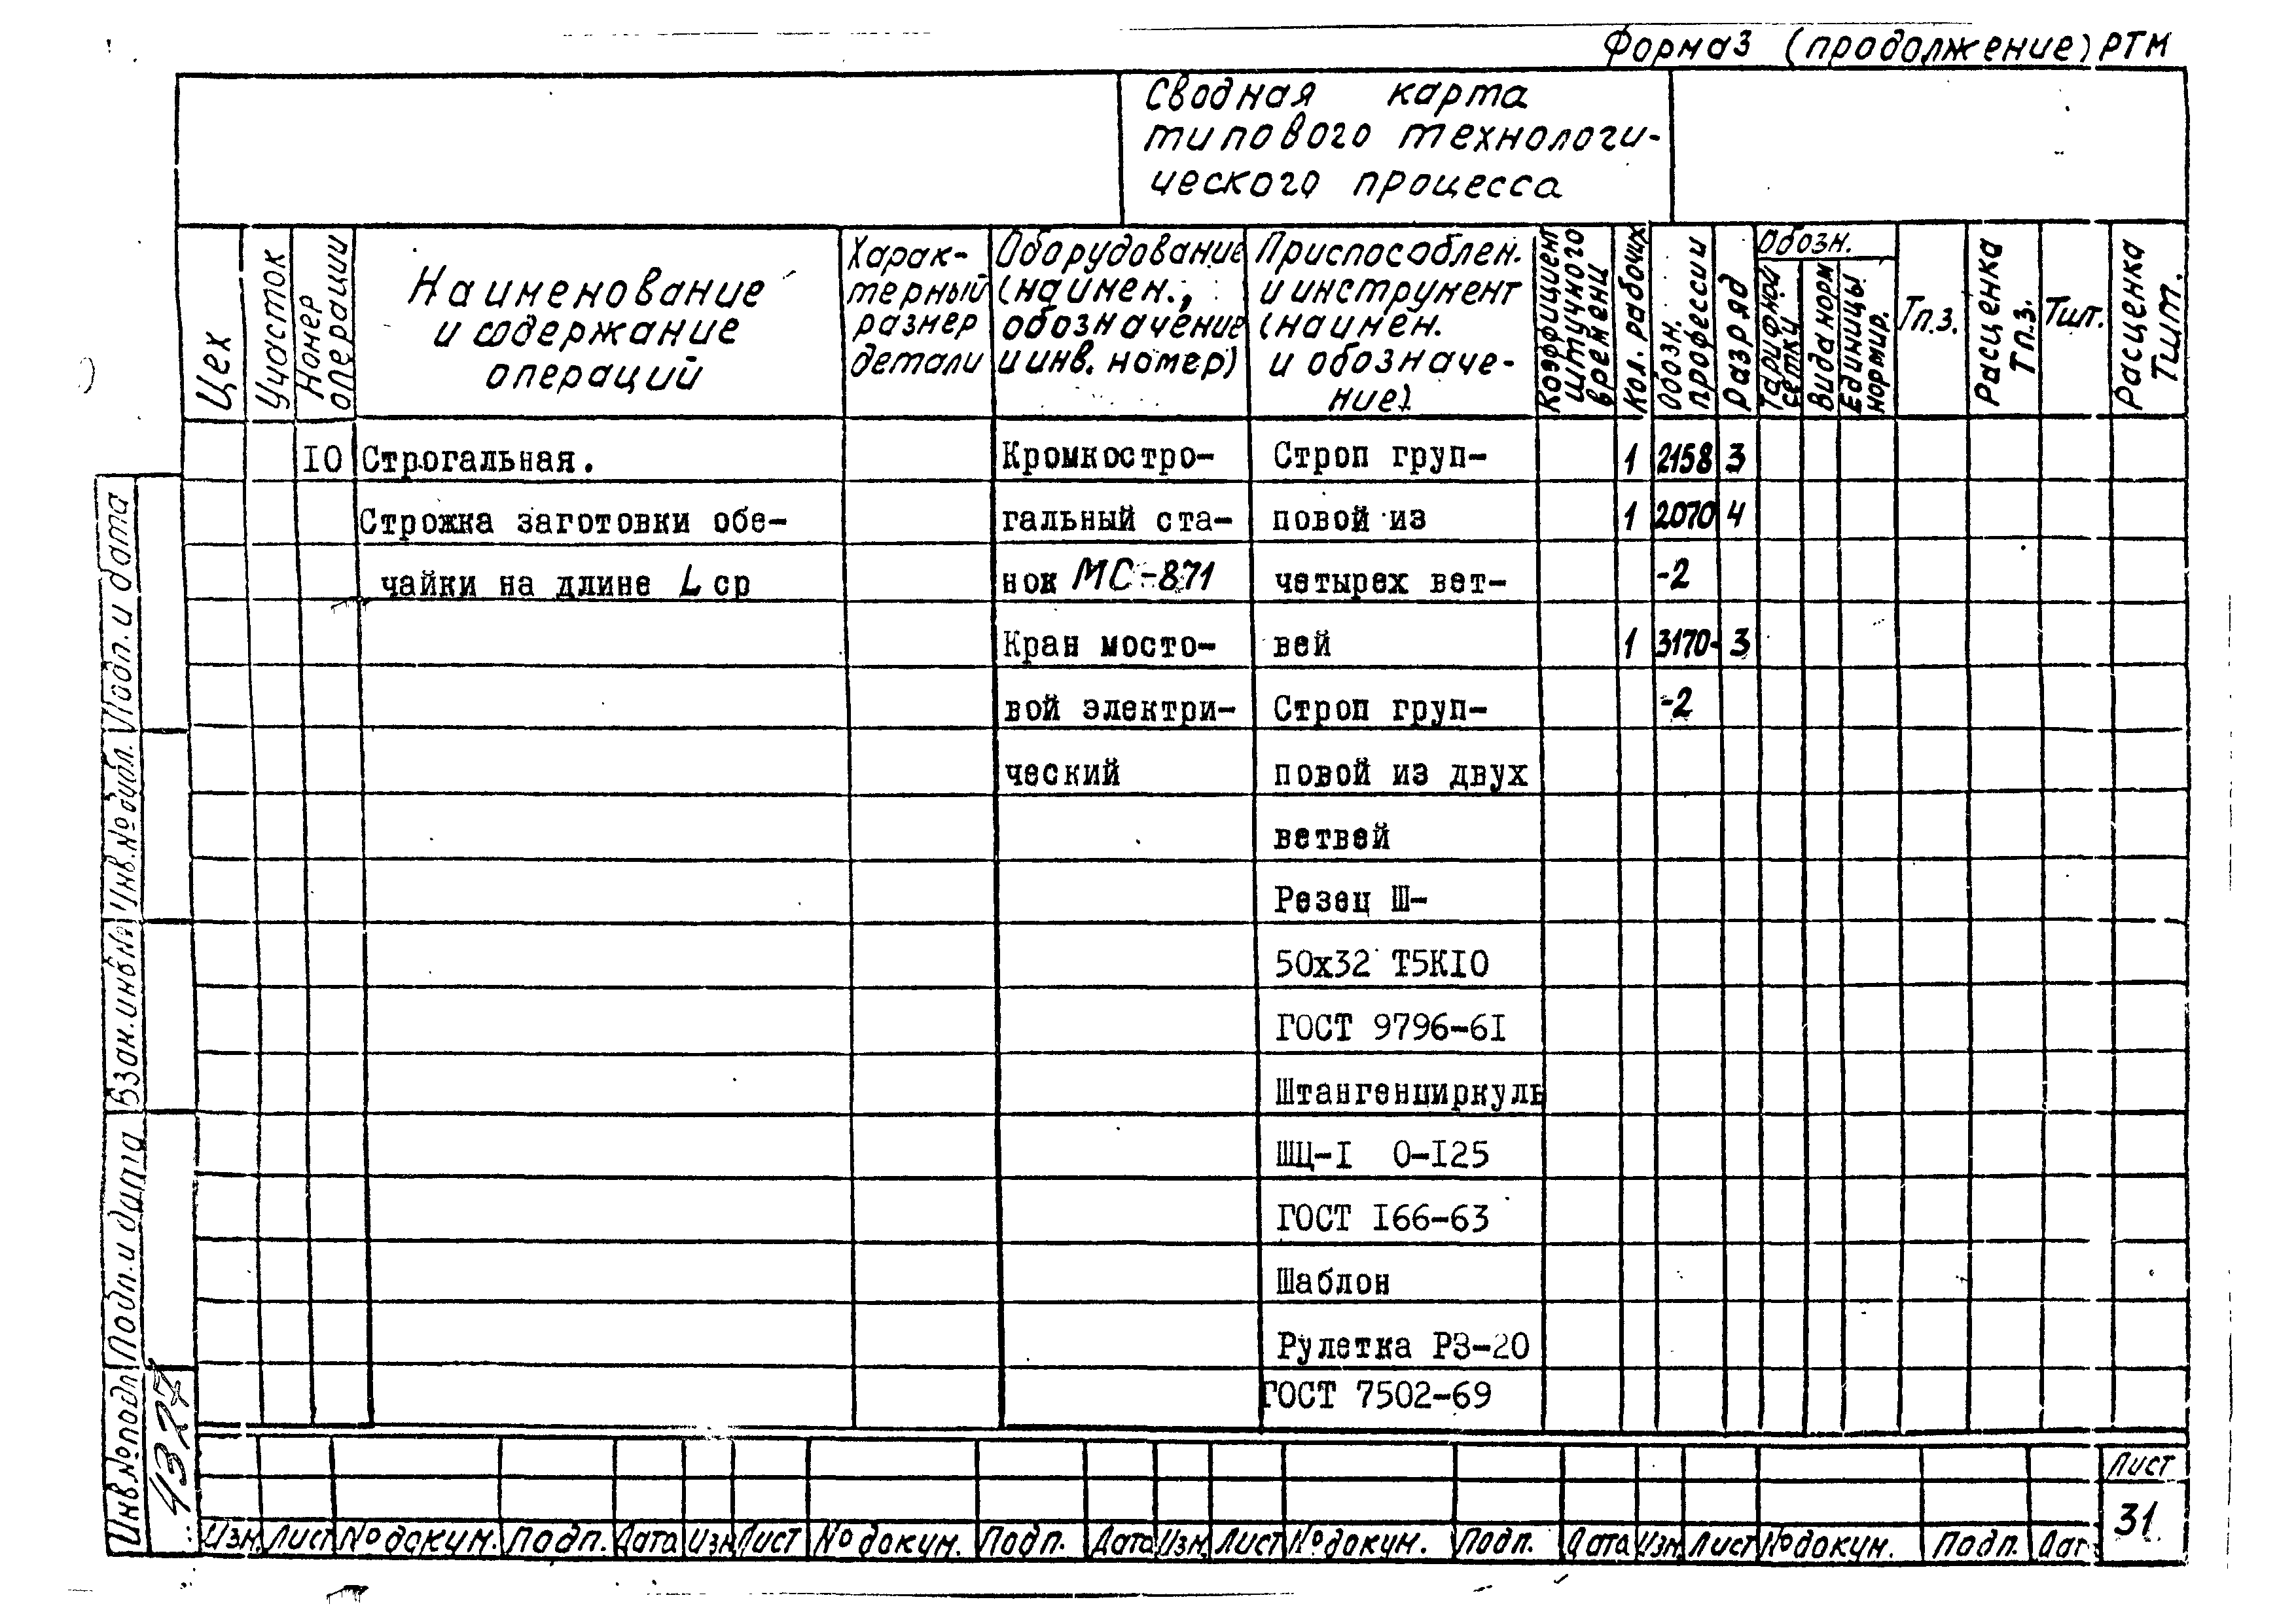 Форма3 (продолжение) РТМ
Сводная карта
типового технологи-
ческого процесса
Цех
Участок
Номер
операции
Наименование
и содержание
операций
Харак-
терный
размер
детали
Оборудование
(наимен.,
обозначение
и инв. номер)
Приспособлен.
и инструмент
(наимен.
и обозначе-
ние)
Коэффициент
штучного
времени
Кол. рабочих
Обозн.
профессии
Разряд
Обозн.
Тарифной
сетки
Вида норм
Единицы
нормир.
Тп.з.
Расценка
Тп.з.
Тшт.
Расценка
Тшт.
10 Строгальная. Кромкостро- Строп груп- 1 2158 3
Строжка заготовки обе- гальный ста- повой из 1 2070 4
чайки на длине L ср нок МС-871 четырех вет- -2
Кран мосто- вей 1 3170- 3
вой электри- Строп груп- -2
ческий повой из двух
ветвей
Резец Ш-
50х32 Т5К10
ГОСТ 9796-61
Штангенциркуль
ШЦ-I 0-125
ГОСТ 166-63
Шаблон
Рулетка РЗ-20
ГОСТ 7502-69
Подп. и дата
Инв.№дубл.
Взам.инв№
Подп. и дата
Инв.№подл
4327
Лист
31
Изм. Лист №докум. Подп. Дата Изм Лист №докум. Подп. Дата Изм. Лист №докум. Подп. Дата Изм. Лист №докум. Подп. Дат